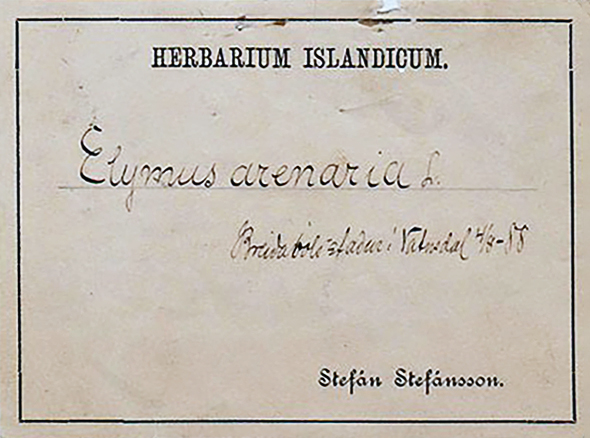 HERBARIUM ISLANDICUM.
Elymus arenaria L.
Breidabólsstadur í Vatnsdal 4/8-88
Stefán Stefánsson.